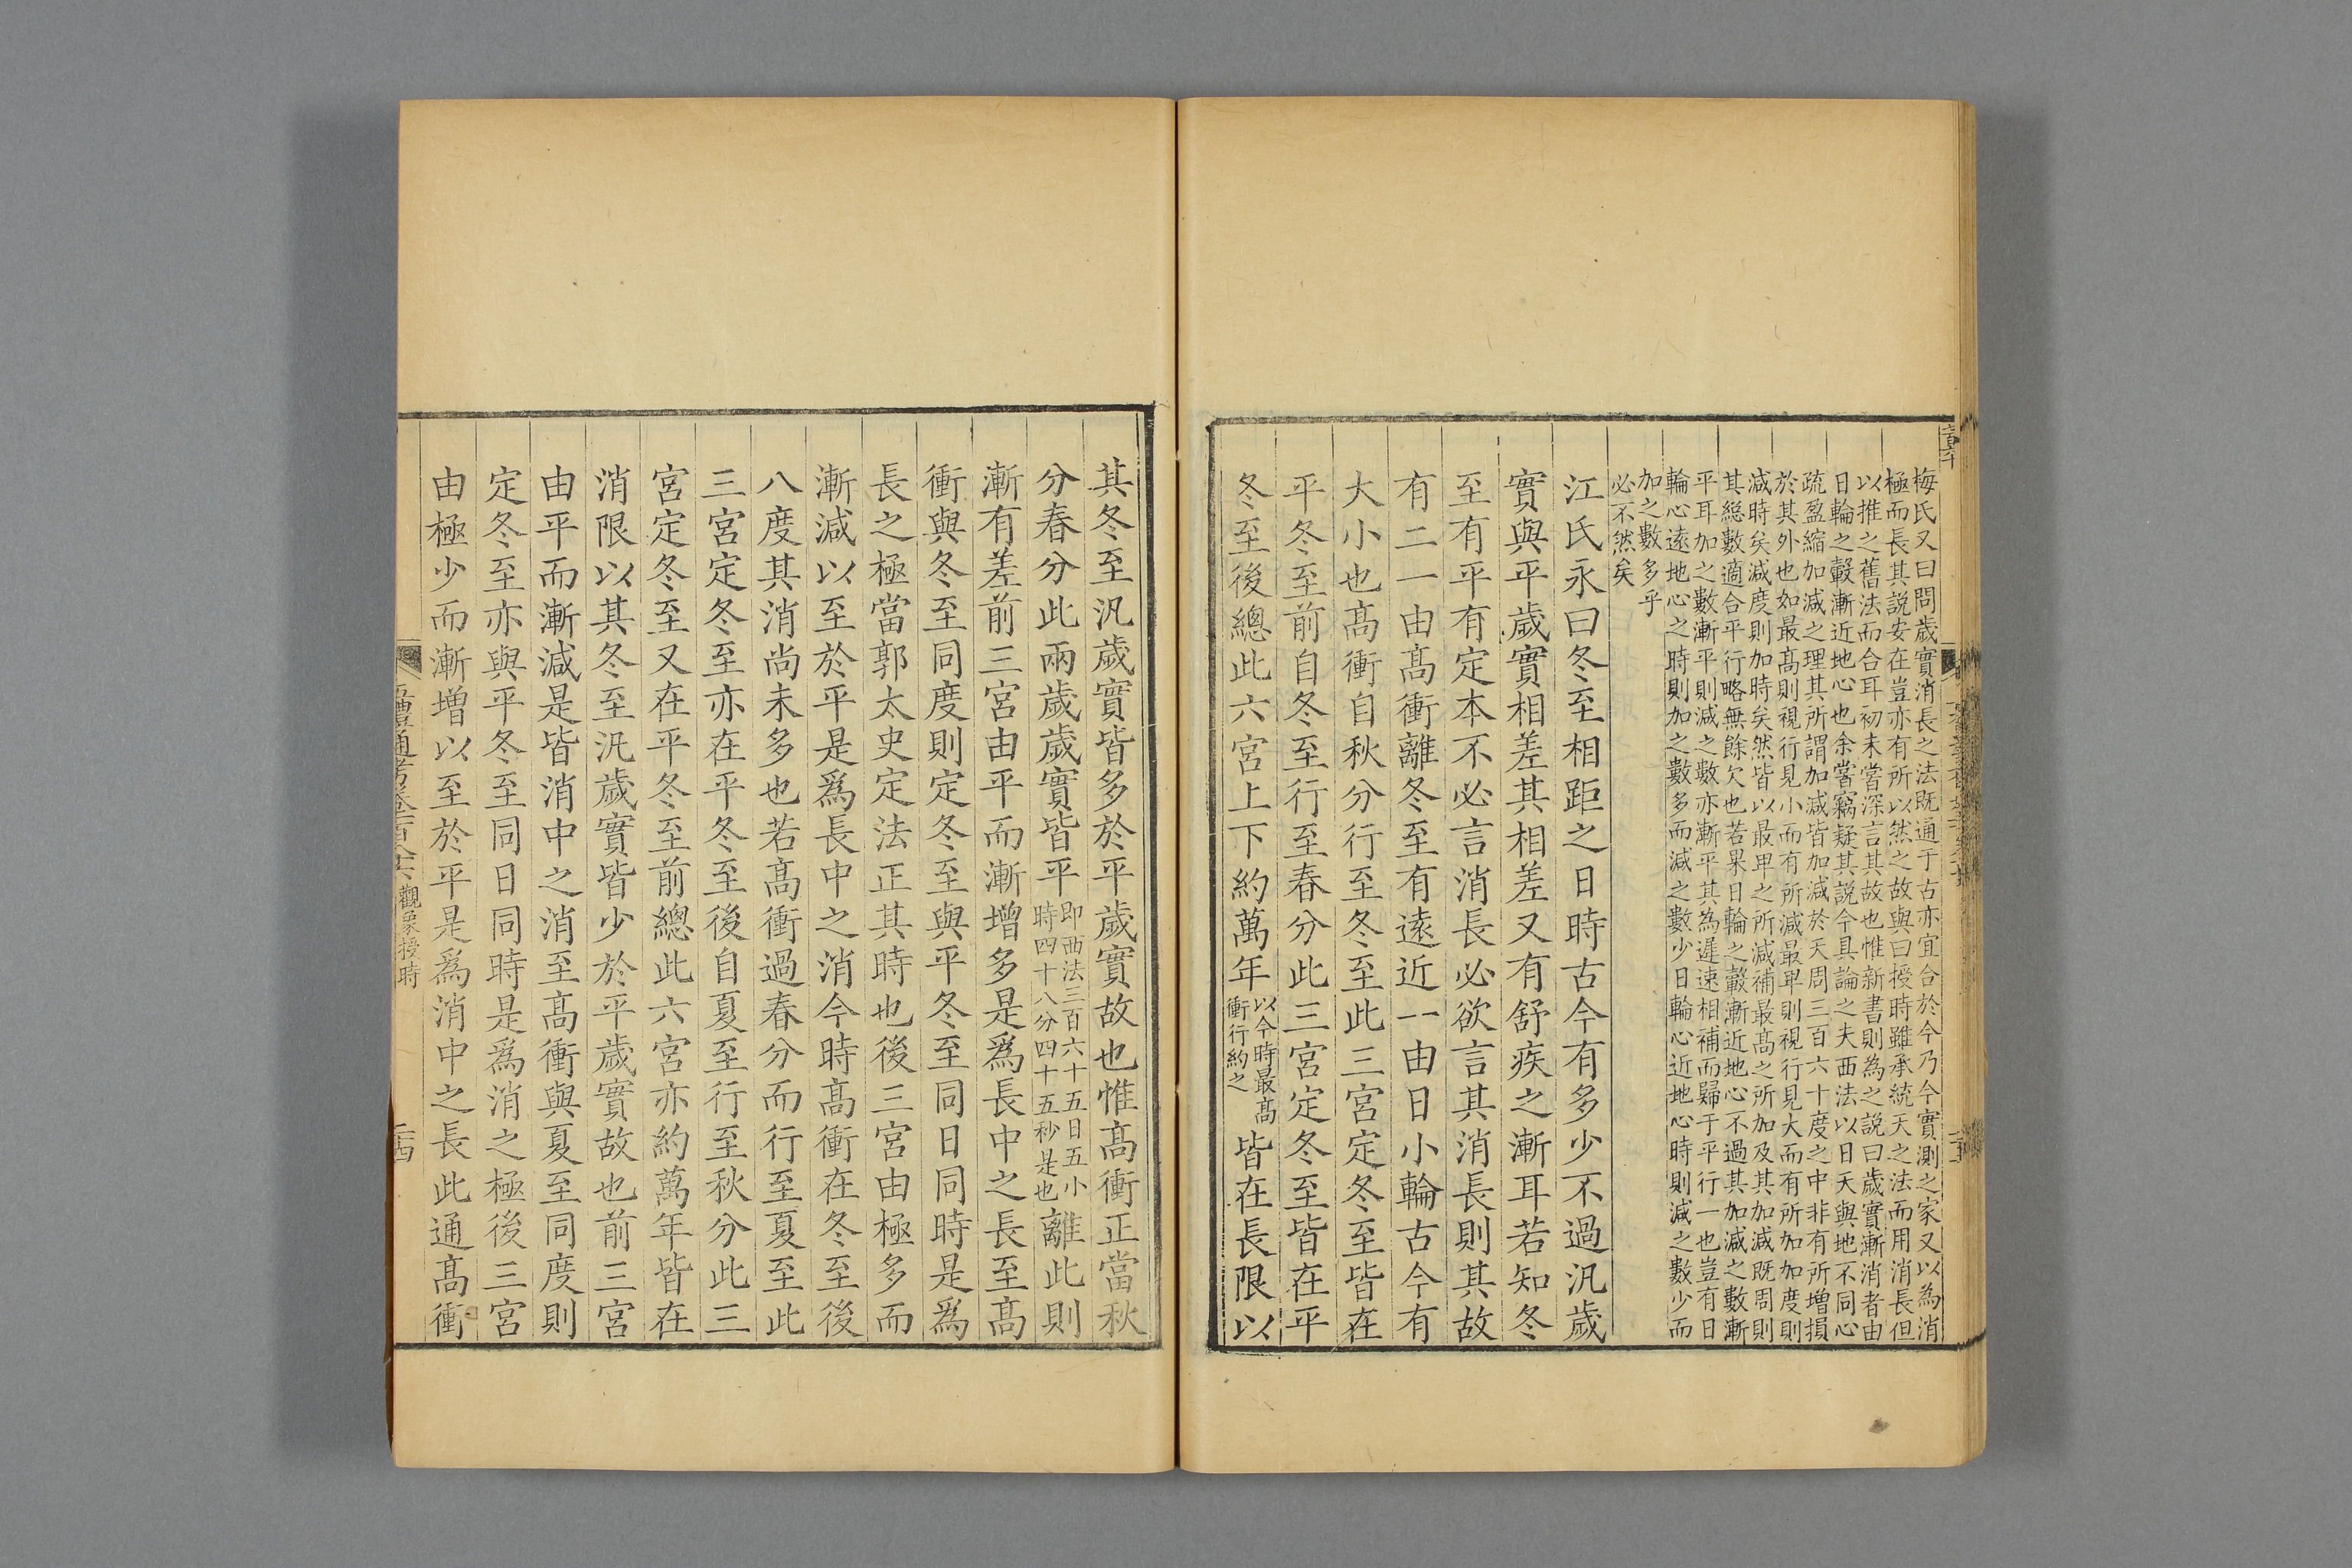 梅氏又曰問歲實消長之法既通于古亦宜合於今乃今實測之家又以為消
極而長其説安在豈亦有所以然之故與曰授時雖承統天之法而用消長但
以推之舊法而合耳初未嘗深言其故也惟新書則為之説曰歲實漸消者由
日輪之轂漸近地心也余嘗竊疑其説今具論之夫西法以日天與地不同心
疏盈縮加減之理其所謂加減皆加減於天周三百六十度之中非有所增損
於其外也如最髙則視行見小而有所減最卑則視行見大而有所加加度則
減時矣減度則加時矣然皆以最卑之所減補最髙之所加及其加減既周則
其総數適合平行略無餘欠也若果日輪之轂漸近地心不過其加減之數漸
平耳加之數漸平則減之數亦漸平其為遲速相補而歸于平行一也豈有日
輪心逺地心之時則加之數多而減之數少日輪心近地心時則減之數少而
加之數多乎
必不然矣
江氏永曰冬至相距之日時古今有多少不過汎歲
實與平歲實相差其相差又有舒疾之漸耳若知冬
至有平有定本不必言消長必欲言其消長則其故
有二一由髙衝離冬至有逺近一由日小輪古今有
大小也髙衝自秋分行至冬至此三宮定冬至皆在
平冬至前自冬至行至春分此三宮定冬至皆在平
冬至後總此六宮上下約萬年以今時最髙衝行約之皆在長限以
其冬至汎歲實皆多於平歲實故也惟髙衝正當秋
分春分此兩歲歲實皆平即西法三百六十五日五小時四十八分四十五秒是也離此則
漸有差前三宮由平而漸增多是爲長中之長至髙
衝與冬至同度則定冬至與平冬至同日同時是爲
長之極當郭太史定法正其時也後三宮由極多而
漸減以至於平是爲長中之消今時髙衝在冬至後
八度其消尚未多也若髙衝過春分而行至夏至此
三宮定冬至亦在平冬至後自夏至行至秋分此三
宮定冬至又在平冬至前總此六宮亦約萬年皆在
消限以其冬至汎歲實皆少於平歲實故也前三宮
由平而漸減是皆消中之消至髙衝與夏至同度則
定冬至亦與平冬至同日同時是爲消之極後三宮
由極少而漸增以至於平是爲消中之長此通髙衝
觀象授時